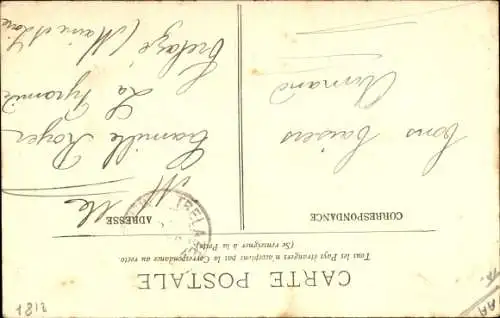 CARTE POSTALE
Tous les Pays étrangers n'acceptent pas la Correspondance au recto.
(Se renseigner à la Poste)
CORRESPONDANCE
ADRESSE
bons baisers
Armand
Mlle
Camille Royer
La Pyramide
Trélazé (Maine et Loire
TRELAZE
1812
AA